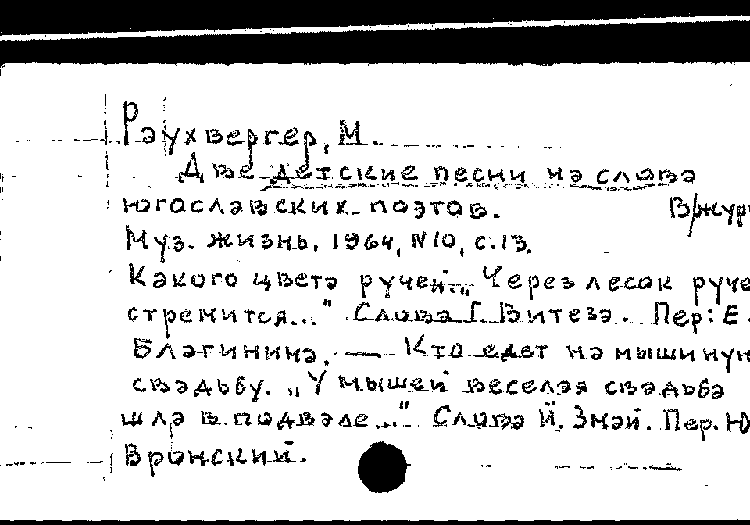 Р
Раухвергер, М.
Две детские песни на слова
югославских поэтов. В/жур
Муз. жизнь. 1964, №10, с.13.
Какого цвета ручей. „Через лесок руче
стремится..." Слова Г. Витеза. Пер: Е.
Благинина. — Кто едет на мышиную
свадьбу. „У мышей веселая свадьба
шла в подвале..." Слова Й. Змай. Пер. Ю
Вронский.